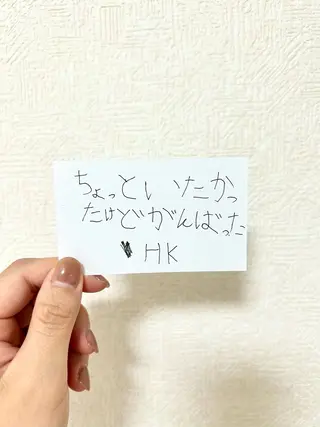 ちょっといたかっ
たけどがんばった
HK